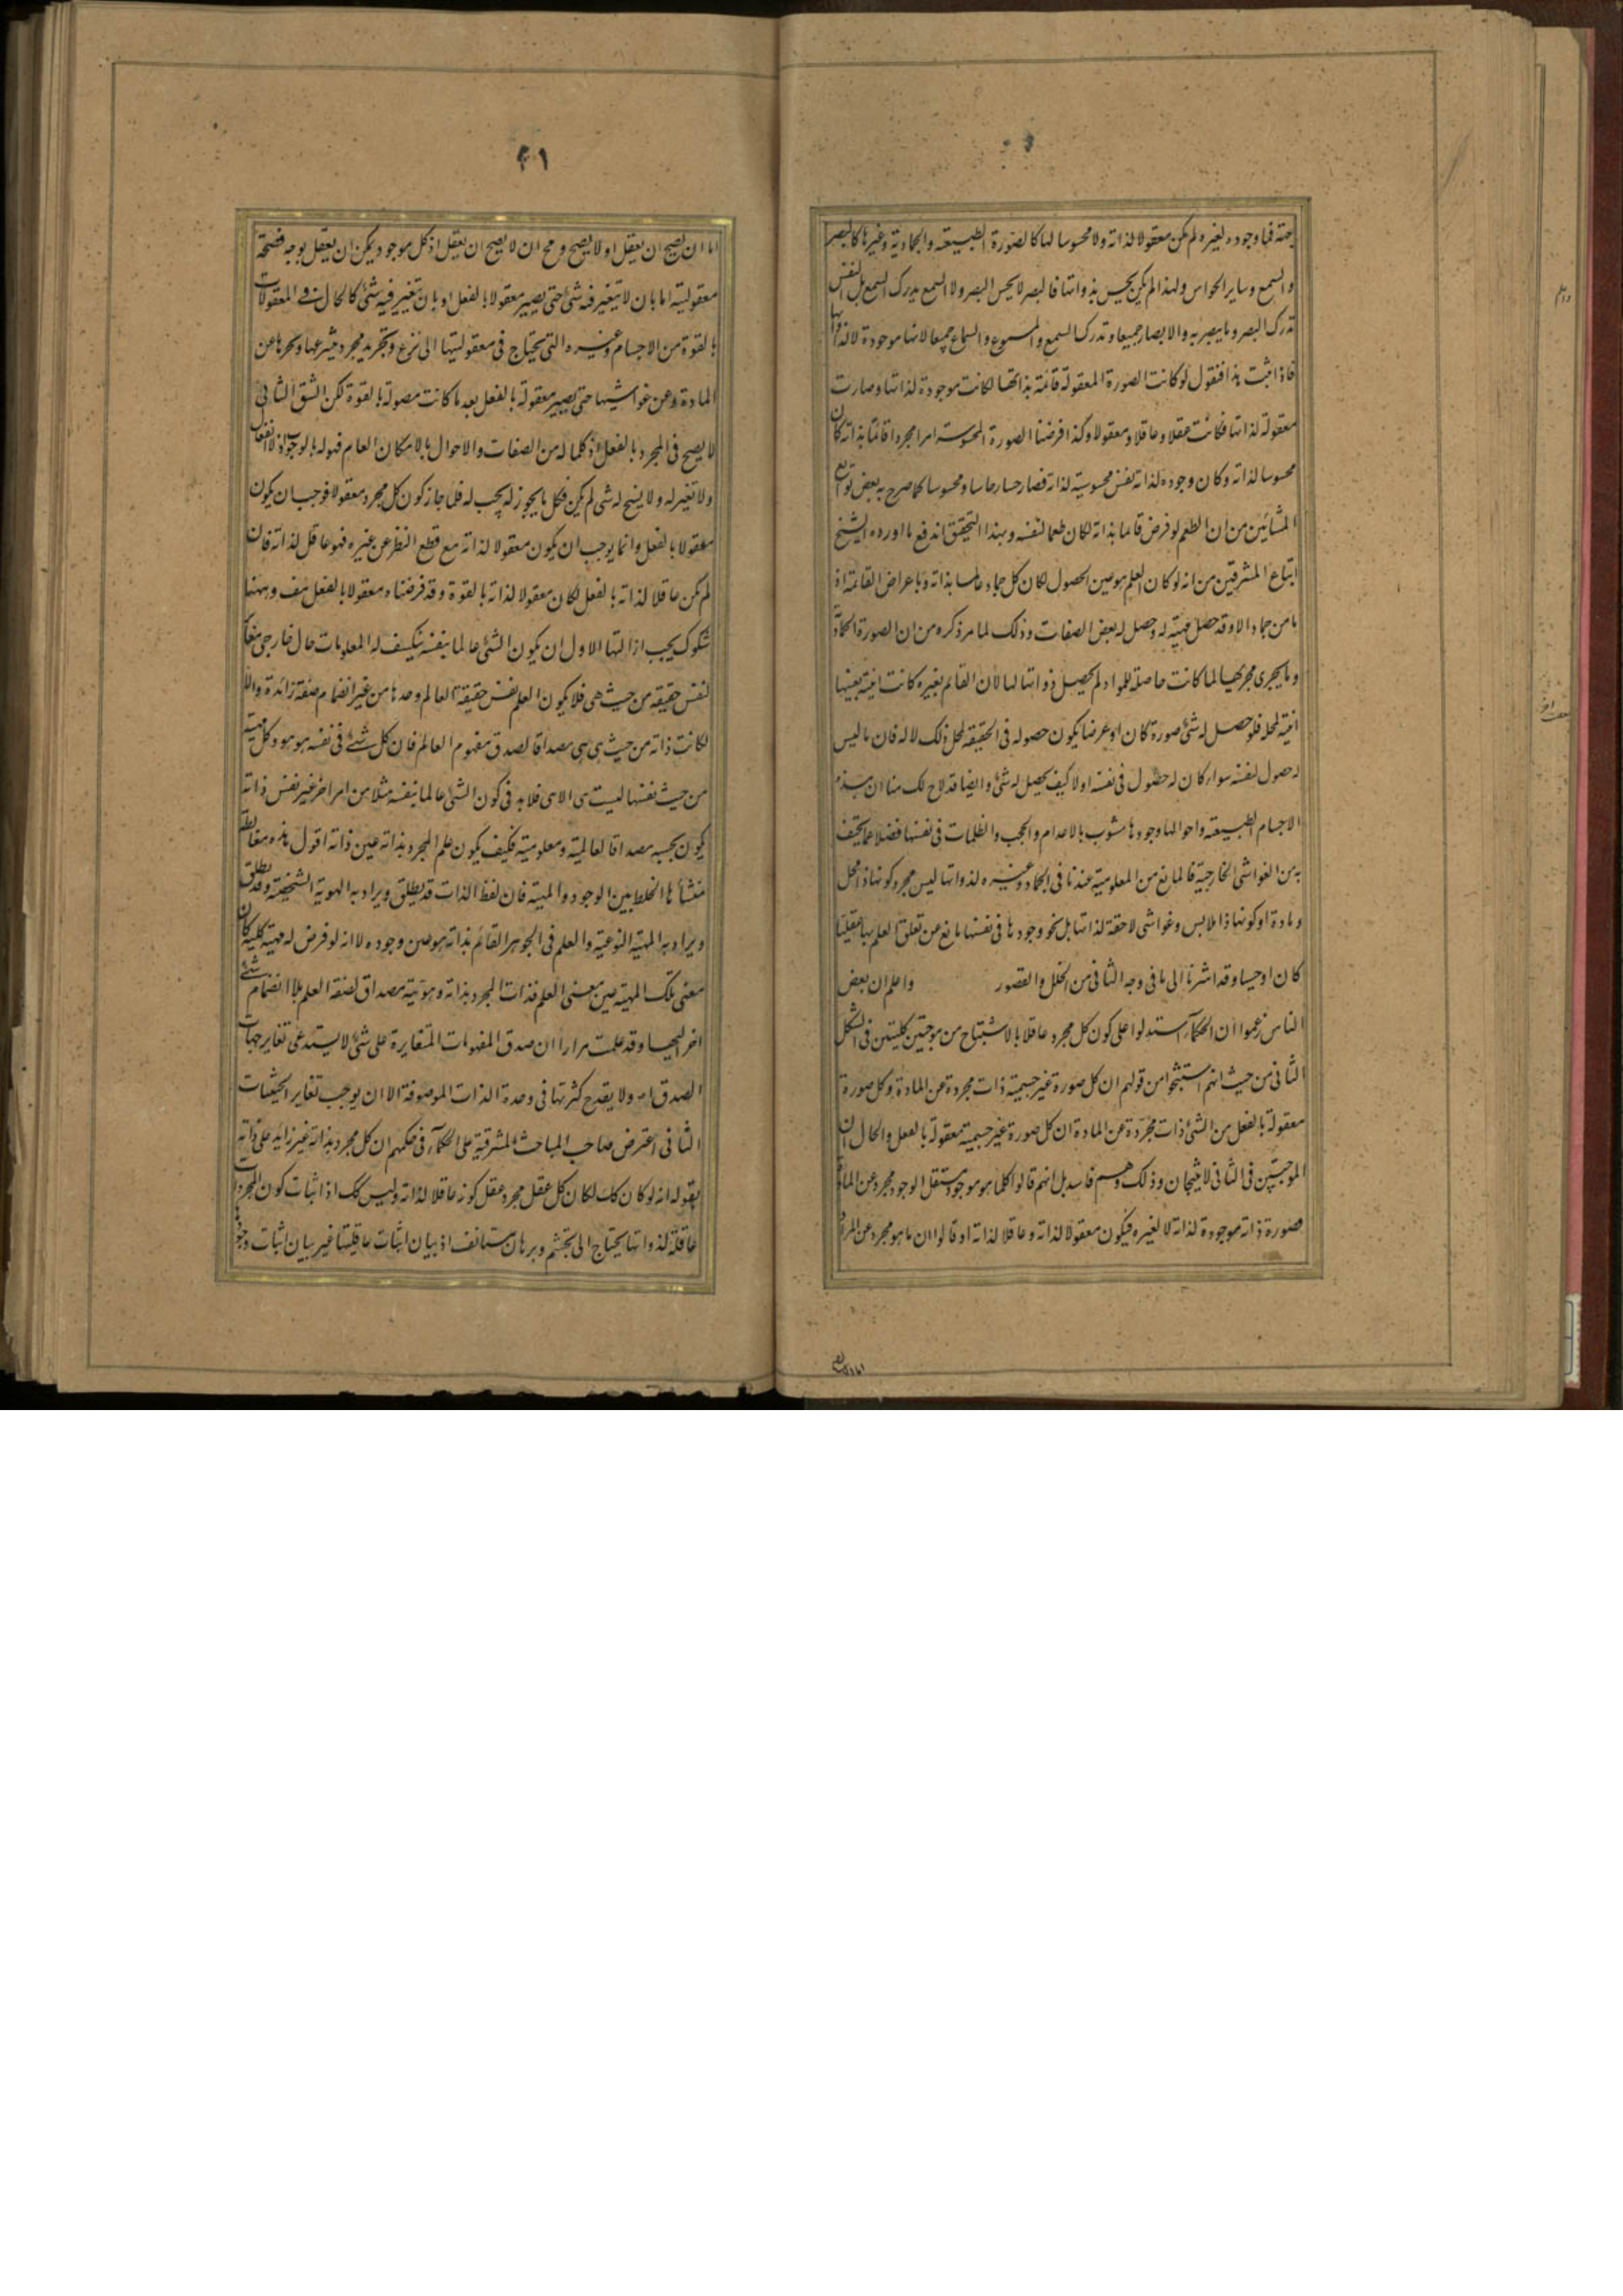 جهته فما وجوده لغيره لم يكن معقولا لذاته ولا محسوسا لها كالصورة الطبيعته والجمادية وغيرها كالبصر
والسمع وساير الحواس ولهذا لم يكن يحس بذواتها فالبصر لا يحس البصر ولا السمع يدرك السمع بل النفس
تدرك البصر وما يبصر به والابصار جميعا وتدرك السمع والمسموع والسماع جميعا لانها موجودة لا لذواتها
فاذا ثبت هذا فنقول لو كانت الصورة المعقولة قائمة بذاتها لكانت موجودة لذاتها وصارت
معقولة لذاتها فكانت عقلا وعاقلا ومعقولا وكذا فرضنا الصورة المحسوسة امرا مجردا قائما بذاته كان
محسوسا لذاته وكان وجوده لذاته نفس محسوسيته لذاته فصار حسا وحاسا ومحسوسا كما صرح به بعض توابع
المشائين من ان الطعم لو فرض قاما بذاته لكان طعما لنفسه وبهذا التحقيق اندفع ما اورده الشيخ
اتباع المشرقين من انه لو كان العلم هو عين الحصول لكان كل جماد عالما بذاته وباعراض القائمة اذ
ما من جماد الا وقد حصل مهيته له وحصل له بعض الصفات وذلك لما مر ذكره من ان الصورة الجمادية
وما يجرى مجريها لما كانت حاصلة للمواد لم يحصل ذواتها لها لان القائم بغيره كانت انيته بعينها
انية لمحله فلو حصل له شئ صورة كان او عرضا يكون حصوله فى الحقيقة لمحل ذلك لا له فان ما ليس
له حصول لنفسه سواء كان له حصول فى نفسه اولا كيف يحصل له شئ وايضا قد لاح لك منا ان هذه
الاجسام الطبيعته واحوالها وجودها مشوب بالاعدام والحجب والظلمات فى نفسها فضلا عما يكتنف
به من الغواشى الخارجية فالمانع من المعلومية عندنا فى الجماد وغيره لذواتها ليس مجرد كونها ذا محل
ومادة او كونها ذا ملابس وغواشى لاحقة لذاتها بل نحو وجودها فى نفسها مانع عن تعلق العلم بها عقليا
كان او حسيا وقد اشرنا الى ما فى وجه الثانى من الخلل والقصور واعلم ان بعض
الناس زعموا ان الحكماء استدلوا على كون كل مجرد عاقلا بالاستنتاج من موجبتين كليتين فى الشكل
الثانى من حيث انهم استنتجوا من قولهم ان كل صورة غير جسمية ذات مجردة عن المادة وكل صورة
معقولة بالفعل من الشئ ذات مجردة عن المادة ان كل صورة غير جسمية معقولة بالفعل والحال ان
الموجبتين فى الثانى لا ينتجان وذلك وهم فاسد بل انهم قالوا كلما هو موجود مستقل الوجود مجرد عن المادة
فصورة ذاته موجودة لذاته لا لغيره فيكون معقولا لذاته وعاقلا لذاته او قالوا ان ما هو مجرد عن المواد
٤١
اما ان يصح ان يعقل او لا يصح ومح ان لا يصح ان يعقل اذ كل موجود يمكن ان يعقل بوجه فصحة
معقوليته اما بان لا يتغير فيه شئ حتى يصير معقولا بالفعل او بان تغير فيه شئ كالحال فى المعقولات
بالقوة من الاجسام وغيره والتى تحتاج فى معقوليتها الى نزع وتجريد مجرد ينزعها ويجردها عن
المادة وعن غواشيها حتى تصير معقولة بالفعل بعد ما كانت معقولة بالقوة لكن الشق الثانى
لا يصح فى المجرد بالفعل اذ كلما له من الصفات والاحوال بالامكان العام فهو له بالوجوب اذ لا انفعال
ولا تغير له ولا يسنح له شى لم يكن فكل ما يجوز له يجب له فلما جاز كون كل مجرد معقولا فوجب ان يكون
معقولا بالفعل وانما يوجب ان يكون معقولا لذاته مع قطع النظر عن غيره فهو عاقل لذاته فان
لم يكن عاقلا لذاته بالفعل لكان معقولا لذاته بالقوة وقد فرضناه معقولا بالفعل هف وههنا
شكوك يجب ازالتها الاول ان يكون الشئ عالما بنفسه ينكشف له المعلومات حال خارجى مغاير
لنفس حقيقته من حيث هى فلا يكون العلم نفس حقيقة العالم وحدها من غير انضمام صفة زائدة والا
لكانت ذاته من حيث هى هى مصداقا لصدق مفهوم العالم فان كل شئ فى نفسه هو هو وكل مهية
من حيث نفسها ليست هى الا هى فلابد فى كون الشئ عالما بنفسه مثلا من امر اخر غير نفس ذاته
يكون بحسبه مصداقا لعالمية ومعلومية فكيف يكون علم المجرد بذاته عين ذاته اقول هذه مغالطة
منشأها الخلط بين الوجود والمهية فان لفظ الذات قد يطلق ويراد به الهوية الشخصية وقد يطلق
ويراد به المهية النوعية والعلم فى الجوهر القائم بذاته هو عين وجوده لا انه لو فرض له مهية كلية كان
معنى تلك المهية عين معنى العلم فذات المجرد بذاته وهويته مصداق لصفة العلم بلا انضمام شئ
اخر اليها وقد علمت مرارا ان صدق المفهومات المتغايرة على شئ لا يستدعى تغاير جهات
الصدق ولا يقدح كثرتها فى وحدة الذات الموصوفة الا ان يوجب تغاير الحيثيات
الثانى اعترض صاحب المباحث المشرقية على الحكماء فى حكمهم ان كل مجرد بذاته غير زايد على ذاته
بقوله انه لو كان كك لكان كل عقل مجرد عقل كونه عاقلا لذاته وليس كك اذ اثبات كون المجردات
عاقلة لذواتها يحتاج الى تجشم وبرهان مستانف اذ بيان اثبات عاقليتها غير بيان اثبات وجودها